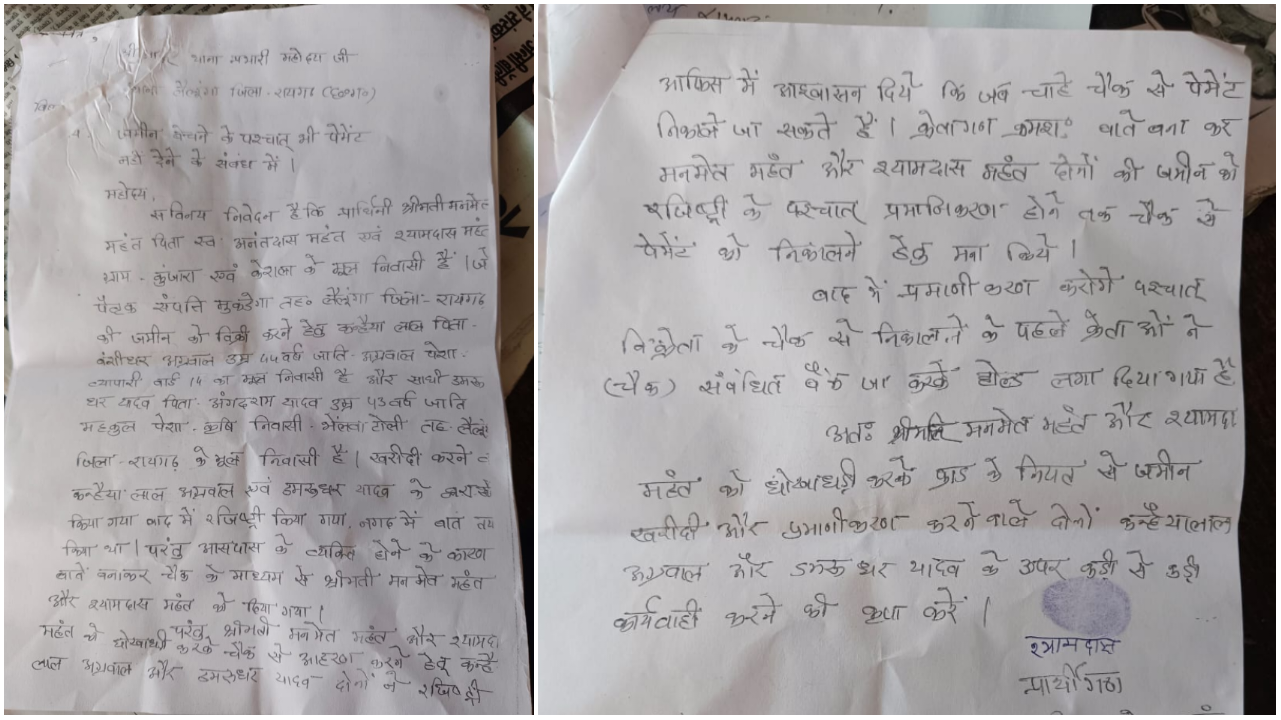 थाना प्रभारी महोदय जी
लैलूंगा जिला - रायगढ़ (छ०ग०)
जमीन बेचने के पश्चात् भी पेमेंट
नही देने के संबंध में।
महोदय,
सविनय निवेदन है कि प्रार्थिनी श्रीमती मनमेत
महंत पिता स्व. अनंतदास महंत एवं श्यामदास महंत
ग्राम - कुंजारा एवं केराला के मूल निवासी हैं। जो
पैतृक संपत्ति मुकडेगा तह० लैलूंगा जिला - रायगढ़
की जमीन को बिक्री करने हेतु कन्हैया लाल पिता -
बंशीधर अग्रवाल उम्र 55 वर्ष जाति - अग्रवाल पेशा -
व्यापारी वार्ड 14 का मूल निवासी है और साथी डमरू
धर यादव पिता - अंगदराम यादव उम्र 53 वर्ष जाति
महकुल पेशा - कृषि निवासी - भेलवाटोली तह - लैलूं
जिला - रायगढ़ के मूल निवासी है। खरीदी करने
कन्हैया लाल अग्रवाल एवं डमरूधर यादव के
किया गया बाद में रजिष्ट्री किया गया, नगद में बात तय
किया था। परंतु आसपास के व्यक्ति होने के कारण
बातें बनाकर चैक के माध्यम से श्रीमती मनमेत महंत
और श्यामदास महंत को दिया गया।
परंतु श्रीमती मनमेत महंत और श्यामदा
महंत को धोखाधड़ी करके चैक से आहरण करने हेतु कन्है
लाल अग्रवाल और डमरूधर यादव दोनों ने रजिष्ट्री
आफिस में आश्वासन दिये कि जब चाहे चैक से पेमेंट
निकाले जा सकते हैं। क्रेतागन क्रमशः बातें बना कर
मनमेत महंत और श्यामदास महंत दोनों की जमीन को
रजिष्ट्री के पश्चात् प्रमाणिकरण होने तक चैक से
पेमेंट को निकालने हेतु मना किये।
बाद में प्रमाणीकरण करोगे पश्चात्
विक्रेता के चैक से निकालने के पहले क्रेताओं ने
(चैक) संबंधित बैंक जा करके होल्ड लगा दिया गया है
अतः श्रीमति मनमेत महंत और श्यामदा
महंत को धोखाधड़ी करके फ्राड के नियत से जमीन
खरीदी और प्रमाणीकरण करने वाले दोनों कन्हैयालाल
अग्रवाल और डमरूधर यादव के उपर कड़ी से कड़ी
कार्यवाही करने की कृपा करें।
श्यामदास
प्रार्थीगण